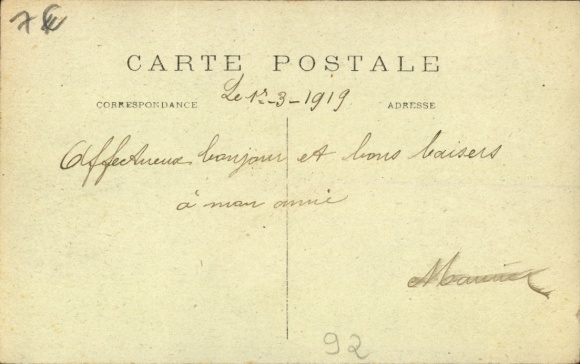 7€
CARTE POSTALE
Le 1er-3-1919
CORRESPONDANCE
ADRESSE
Affectueux bonjour et bons baisers
à mon amie
92